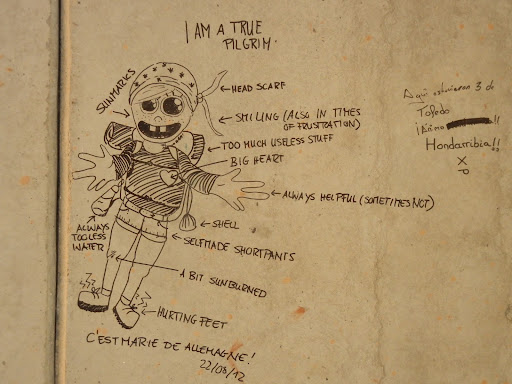 I AM A TRUE
PILGRIM.
SUNMARKS
← HEAD SCARF
← SMILING (ALSO IN TIMES
OF FRUSTRATION)
← TOO MUCH USELESS STUFF
BIG HEART
← ALWAYS HELPFUL (SOMETIMES NOT)
ALWAYS
TOO LESS
WATER
← SHELL
← SELFMADE SHORTPANTS
A BIT SUNBURNED
HURTING FEET
C'EST MARIE DE ALLEMAGNE!
22/08/12
Aquí estuvieron 3 de
Toledo
¡Ánimo !!
Hondarribia!!